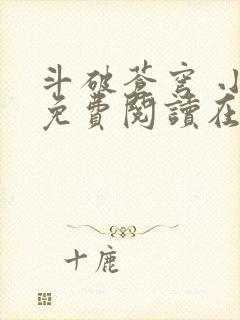 斗破苍穹 小
免費閱讀在
十鹿